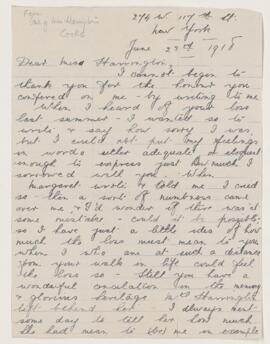 From
Cooks
274 W. 117th St.
New York
June 23rd 1918
Dear Miss Harrington,
I cannot begin to
thank you for the honour you
conferred on me by writing to me
When I heard of your loss
last summer - I wanted so to
write & say how sorry I was
but I could not put my feelings
in words either adequate or eloquent
enough to express just how much I
sorrowed with you. When
Margaret wrote & told me I cried
so - then a sort of numbness came
over me & I'd wonder if there was not
some mistake - could it be possible,
so I have just a little idea of how
much the loss must mean to you
when I who am at such a distance
from you walk in life could feel
the loss so - Still you have a
wonderful consolation in the memory
& glorious heritage Mrs Harrington
left behind her. I always meant
some day to tell her how much
she had mean to be me an example